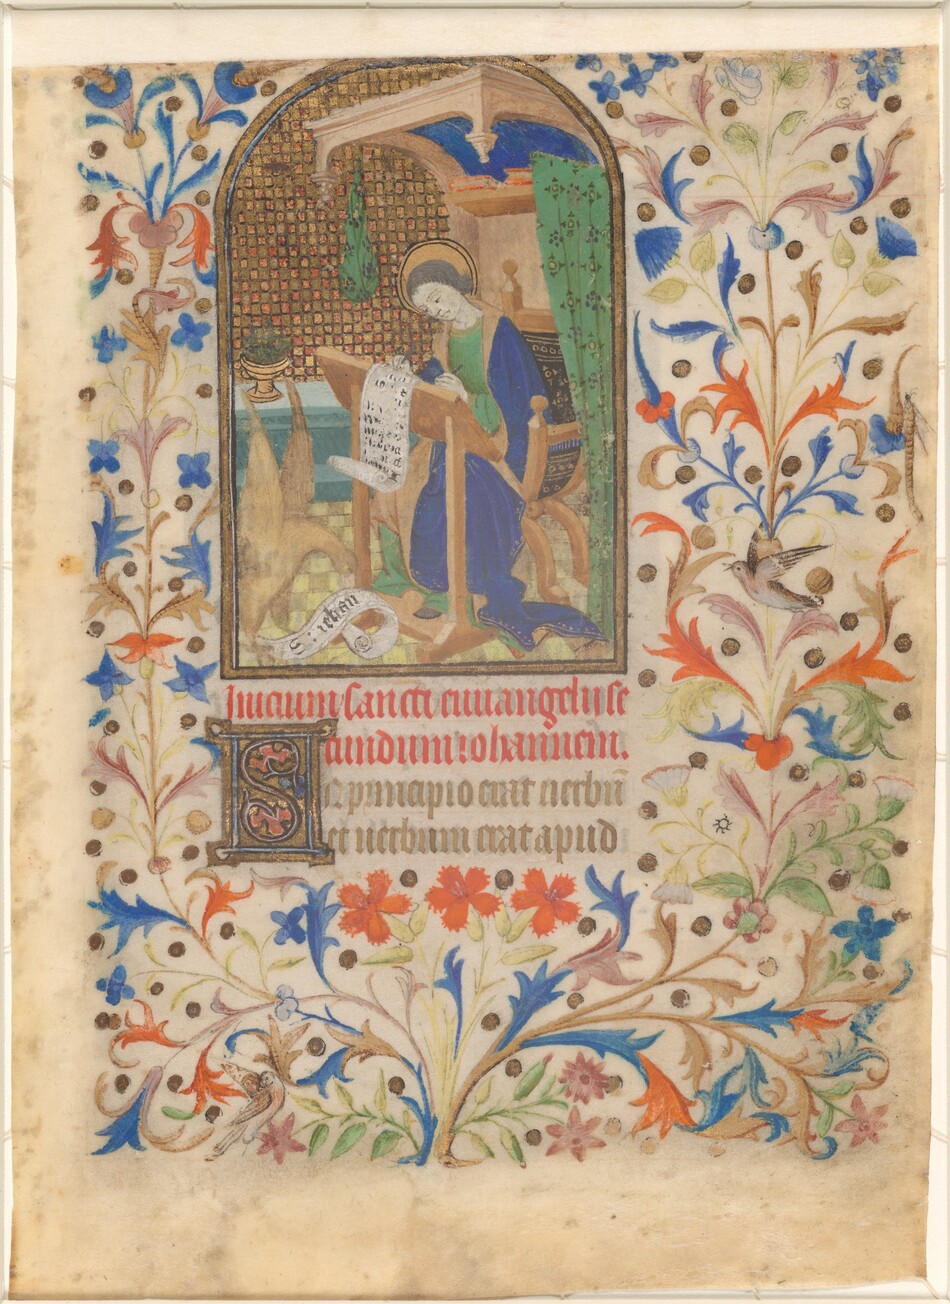 S: iehan
Inicium sancti euuangelii se
cundum iohannem.
In principio erat uerbū
et uerbum erat apud